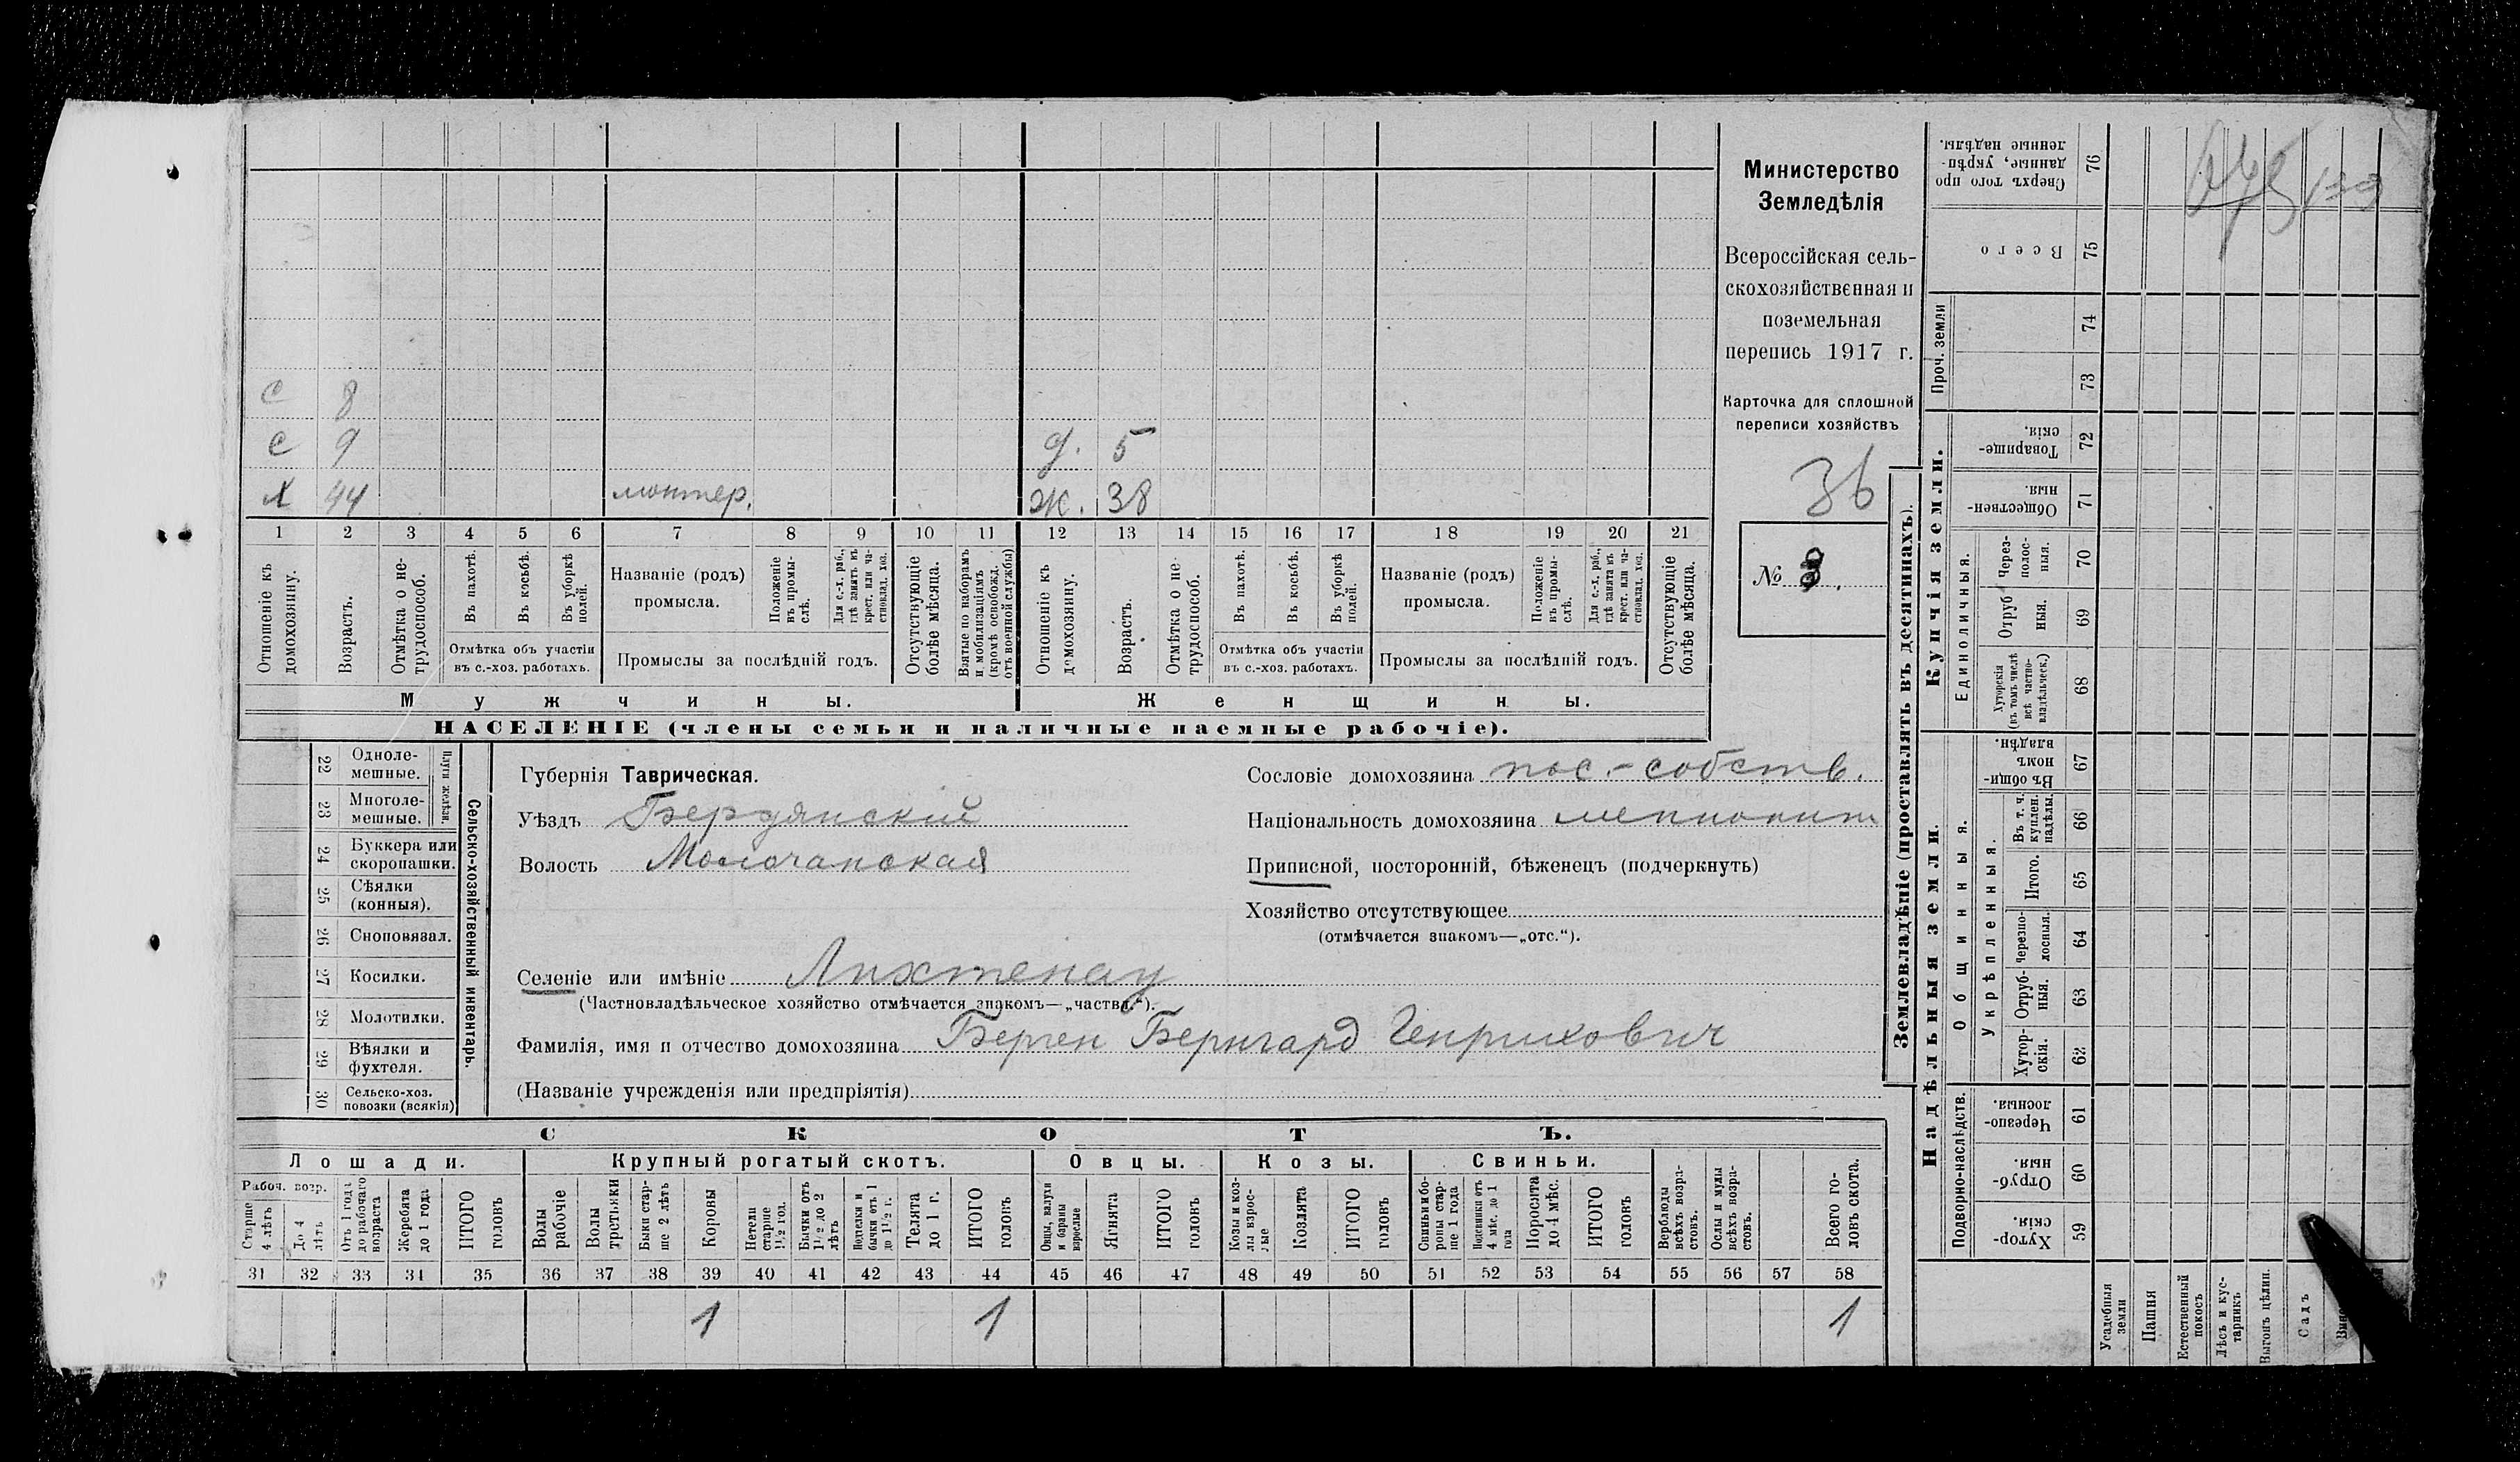 Министерство
Земледѣлія
Всероссійская сель-
скохозяйственная и
поземельная
перепись 1917 г.
Карточка для сплошной
переписи хозяйствъ
36
№ 8.
с 8
с 9 д. 5
х 44 монтер. ж. 38
1 2 3 4 5 6 7 8 9 10 11 12 13 14 15 16 17 18 19 20 21
Отношеніе къ домохозяину.
Возрастъ.
Отмѣтка о не-трудоспособ.
Въ пахотѣ.
Въ косьбѣ.
Въ уборкѣ полей.
Отмѣтка объ участіи
въ с.-хоз. работахъ.
Названіе (родъ)
промысла.
Положеніе въ промы-слѣ.
Для с.-х. раб., гдѣ занятъ въ крест. или ча-стновлад. хоз.
Промыслы за послѣдній годъ.
Отсутствующіе болѣе мѣсяца.
Взятые по наборамъ и мобилизаціямъ (кромѣ освобожд. отъ военной службы)
Отношеніе къ домохозяину.
Возрастъ.
Отмѣтка о не-трудоспособ.
Въ пахотѣ.
Въ косьбѣ.
Въ уборкѣ полей.
Отмѣтка объ участіи
въ с.-хоз. работахъ.
Названіе (родъ)
промысла.
Положеніе въ промы-слѣ.
Для с.-х. раб., гдѣ занята въ крест. или ча-стновлад. хоз.
Промыслы за послѣдній годъ.
Отсутствующіе болѣе мѣсяца.
Мужчины. Женщины.
НАСЕЛЕНІЕ (члены семьи и наличные наемные рабочіе).
22 Одноле-мешные.
23 Многоле-мешные.
Плуги желѣзн.
24 Буккера или скоропашки.
25 Сѣялки (конныя).
26 Сноповязал.
27 Косилки.
28 Молотилки.
29 Вѣялки и фухтеля.
30 Сельско-хоз. повозки (всякія)
Сельско-хозяйственный инвентарь.
Губернія Таврическая.
Уѣздъ Бердянскій
Волость Молочанская
Сословіе домохозяина пос.-собств.
Національность домохозяина меннонит
Приписной, посторонній, бѣженецъ (подчеркнуть)
Хозяйство отсутствующее
(отмѣчается знакомъ—„отс.“).
Селеніе или имѣніе Лихтенау
(Частновладѣльческое хозяйство отмѣчается знакомъ—„частвл.“).
Фамилія, имя и отчество домохозяина Берген Бернгард Генрихович
(Названіе учрежденія или предпріятія)
СКОТЪ.
Лошади. Крупный рогатый скотъ. Овцы. Козы. Свиньи.
Рабоч. возр.
Старше 4 лѣтъ
До 4 лѣтъ
Отъ 1 года до рабочаго возраста
Жеребята до 1 года
ИТОГО головъ
Волы рабочіе
Волы третьяки
Быки стар-ше 2 лѣтъ
Коровы
Нетели старше 1½ год.
Бычки отъ 1½ до 2 лѣтъ
Подтелки и бычки отъ 1 до 1½ г.
Телята до 1 г.
ИТОГО головъ
Овцы, валухи и бараны взрослые
Ягнята
ИТОГО головъ
Козы и коз-лы взрос-лые
Козлята
ИТОГО головъ
Свиньи и бо-ровы стар-ше 1 года
Подсвинки отъ 4 мѣс. до 1 года
Поросята до 4 мѣс.
ИТОГО головъ
Верблюды всѣхъ возра-стовъ.
Ослы и мулы всѣхъ возра-стовъ.
Всего го-ловъ скота.
31 32 33 34 35 36 37 38 39 40 41 42 43 44 45 46 47 48 49 50 51 52 53 54 55 56 57 58
1 1 1
Землевладѣніе (проставлять въ десятинахъ).
Купчія земли.
Надѣльныя земли.
Проч. земли
Единоличныя.
Общинныя.
Укрѣпленныя.
Подворно-наслѣдств.
Сверхъ того про данные, укрѣп-ленные надѣлы. 76
Всего 75
74
73
Товарище-скія. 72
Обществен-ныя. 71
Через-полос-ныя. 70
Отруб ныя. 69
Хуторскія (въ томъ числѣ всѣ частно-владѣльческ.) 68
Въ общи-номъ владѣн. 67
Въ т. ч. куплен. надѣлы. 66
Итого. 65
Черезпо-лосныя. 64
Отруб-ныя. 63
Хутор-скія. 62
Черезпо-лосныя. 61
Отруб-ныя. 60
Хутор-скія. 59
Усадебныя земли
Пашня
Естественный покосъ
Лѣсъ и кус-тарникъ
Выгонъ цѣлин.
Садъ